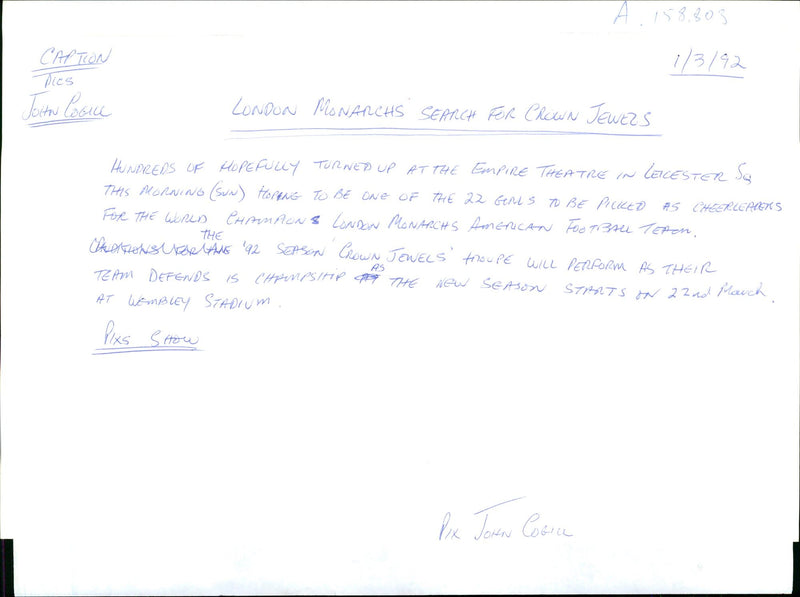 A. 158.803
CAPTION
PICS
JOHN COGILL
1/3/92
LONDON MONARCHS' SEARCH FOR CROWN JEWELS
HUNDREDS OF HOPEFULLY TURNED UP AT THE EMPIRE THEATRE IN LEICESTER SQ
THIS MORNING (SUN) HOPING TO BE ONE OF THE 22 GIRLS TO BE PICKED AS CHEERLEADERS
FOR THE WORLD CHAMPIONS LONDON MONARCHS AMERICAN FOOTBALL TEAM.
THE '92 SEASON 'CROWN JEWELS' TROUPE WILL PERFORM AS THEIR
TEAM DEFENDS IS CHAMPSHIP AS THE NEW SEASON STARTS ON 22nd March
AT WEMBLEY STADIUM.
PIXS SHOW
PIX JOHN COGILL